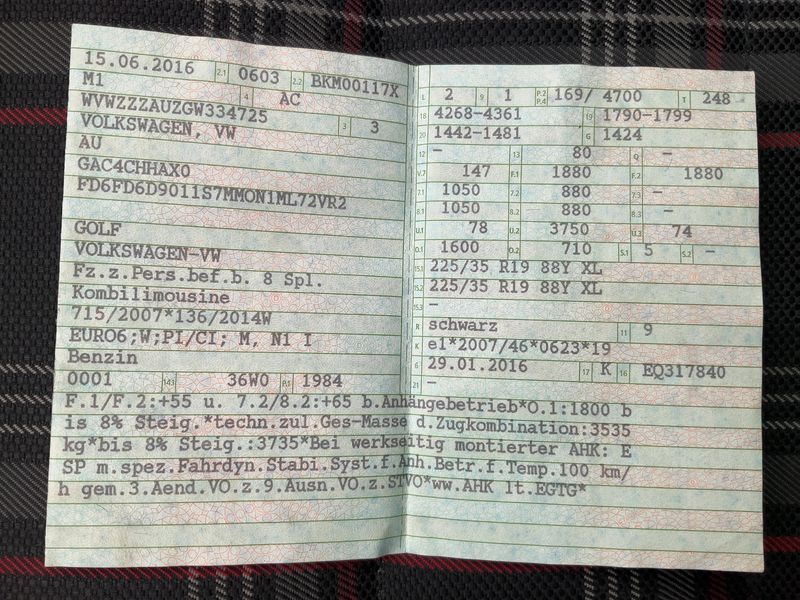 15.06.2016 2.1 0603 2.2 BKM00117X
M1 4 AC
WVWZZZAUZGW334725
VOLKSWAGEN, VW 3 3
AU
GAC4CHHAX0
FD6FD6D9011S7MMON1ML72VR2
GOLF
VOLKSWAGEN-VW
Fz.z.Pers.bef.b. 8 Spl.
Kombilimousine
715/2007*136/2014W
EURO6;W;PI/CI; M, N1 I
Benzin
0001 14.1 36W0 P.1 1984
L 2 9 1 P.2 P.4 169/ 4700 T 248
18 4268-4361 19 1790-1799
20 1442-1481 G 1424
12 – 13 80 Q –
V.7 147 F.1 1880 F.2 1880
7.1 1050 7.2 880 7.3 –
8.1 1050 8.2 880 8.3 –
U.1 78 U.2 3750 U.3 74
O.1 1600 O.2 710 S.1 5 S.2 –
15.1 225/35 R19 88Y XL
15.2 225/35 R19 88Y XL
15.3 –
R schwarz 11 9
K e1*2007/46*0623*19
6 29.01.2016 17 K 16 EQ317840
21 –
F.1/F.2:+55 u. 7.2/8.2:+65 b.Anhängebetrieb*O.1:1800 b
is 8% Steig.*techn.zul.Ges-Masse d.Zugkombination:3535
kg*bis 8% Steig.:3735*Bei werkseitig montierter AHK: E
SP m.spez.Fahrdyn.Stabi.Syst.f.Anh.Betr.f.Temp.100 km/
h gem.3.Aend.VO.z.9.Ausn.VO.z.STVO*ww.AHK lt.EGTG*